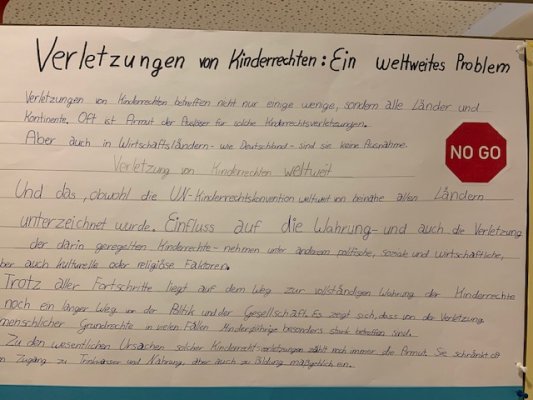 Verletzungen von Kinderrechten: Ein weltweites Problem
Verletzungen von Kinderrechten betreffen nicht nur einige wenige, sondern alle Länder und
Kontinente. Oft ist Armut der Auslöser für solche Kinderrechtsverletzungen.
Aber auch in Wirtschaftsländern - wie Deutschland - sind sie keine Ausnahme.
NO GO
Verletzung von Kinderrechten weltweit
Und das, obwohl die UN-Kinderrechtskonvention weltweit von beinahe allen Ländern
unterzeichnet wurde. Einfluss auf die Wahrung - und auch die Verletzung
der darin geregelten Kinderrechte - nehmen unter anderem politische, soziale und wirtschaftliche,
ber auch kulturelle oder religiöse Faktoren.
Trotz aller Fortschritte liegt auf dem Weg zur vollständigen Wahrung der Kinderrechte
noch ein langer Weg vor der Politik und der Gesellschaft. Es zeigt sich, dass von der Verletzung
menschlicher Grundrechte in vielen Fällen Minderjährige besonders stark betroffen sind.
Zu den wesentlichen Ursachen solcher Kinderrechtsverletzungen zählt noch immer die Armut. Sie schränkt oft
n Zugang zu Trinkwasser und Nahrung, aber auch zu Bildung maßgeblich ein.